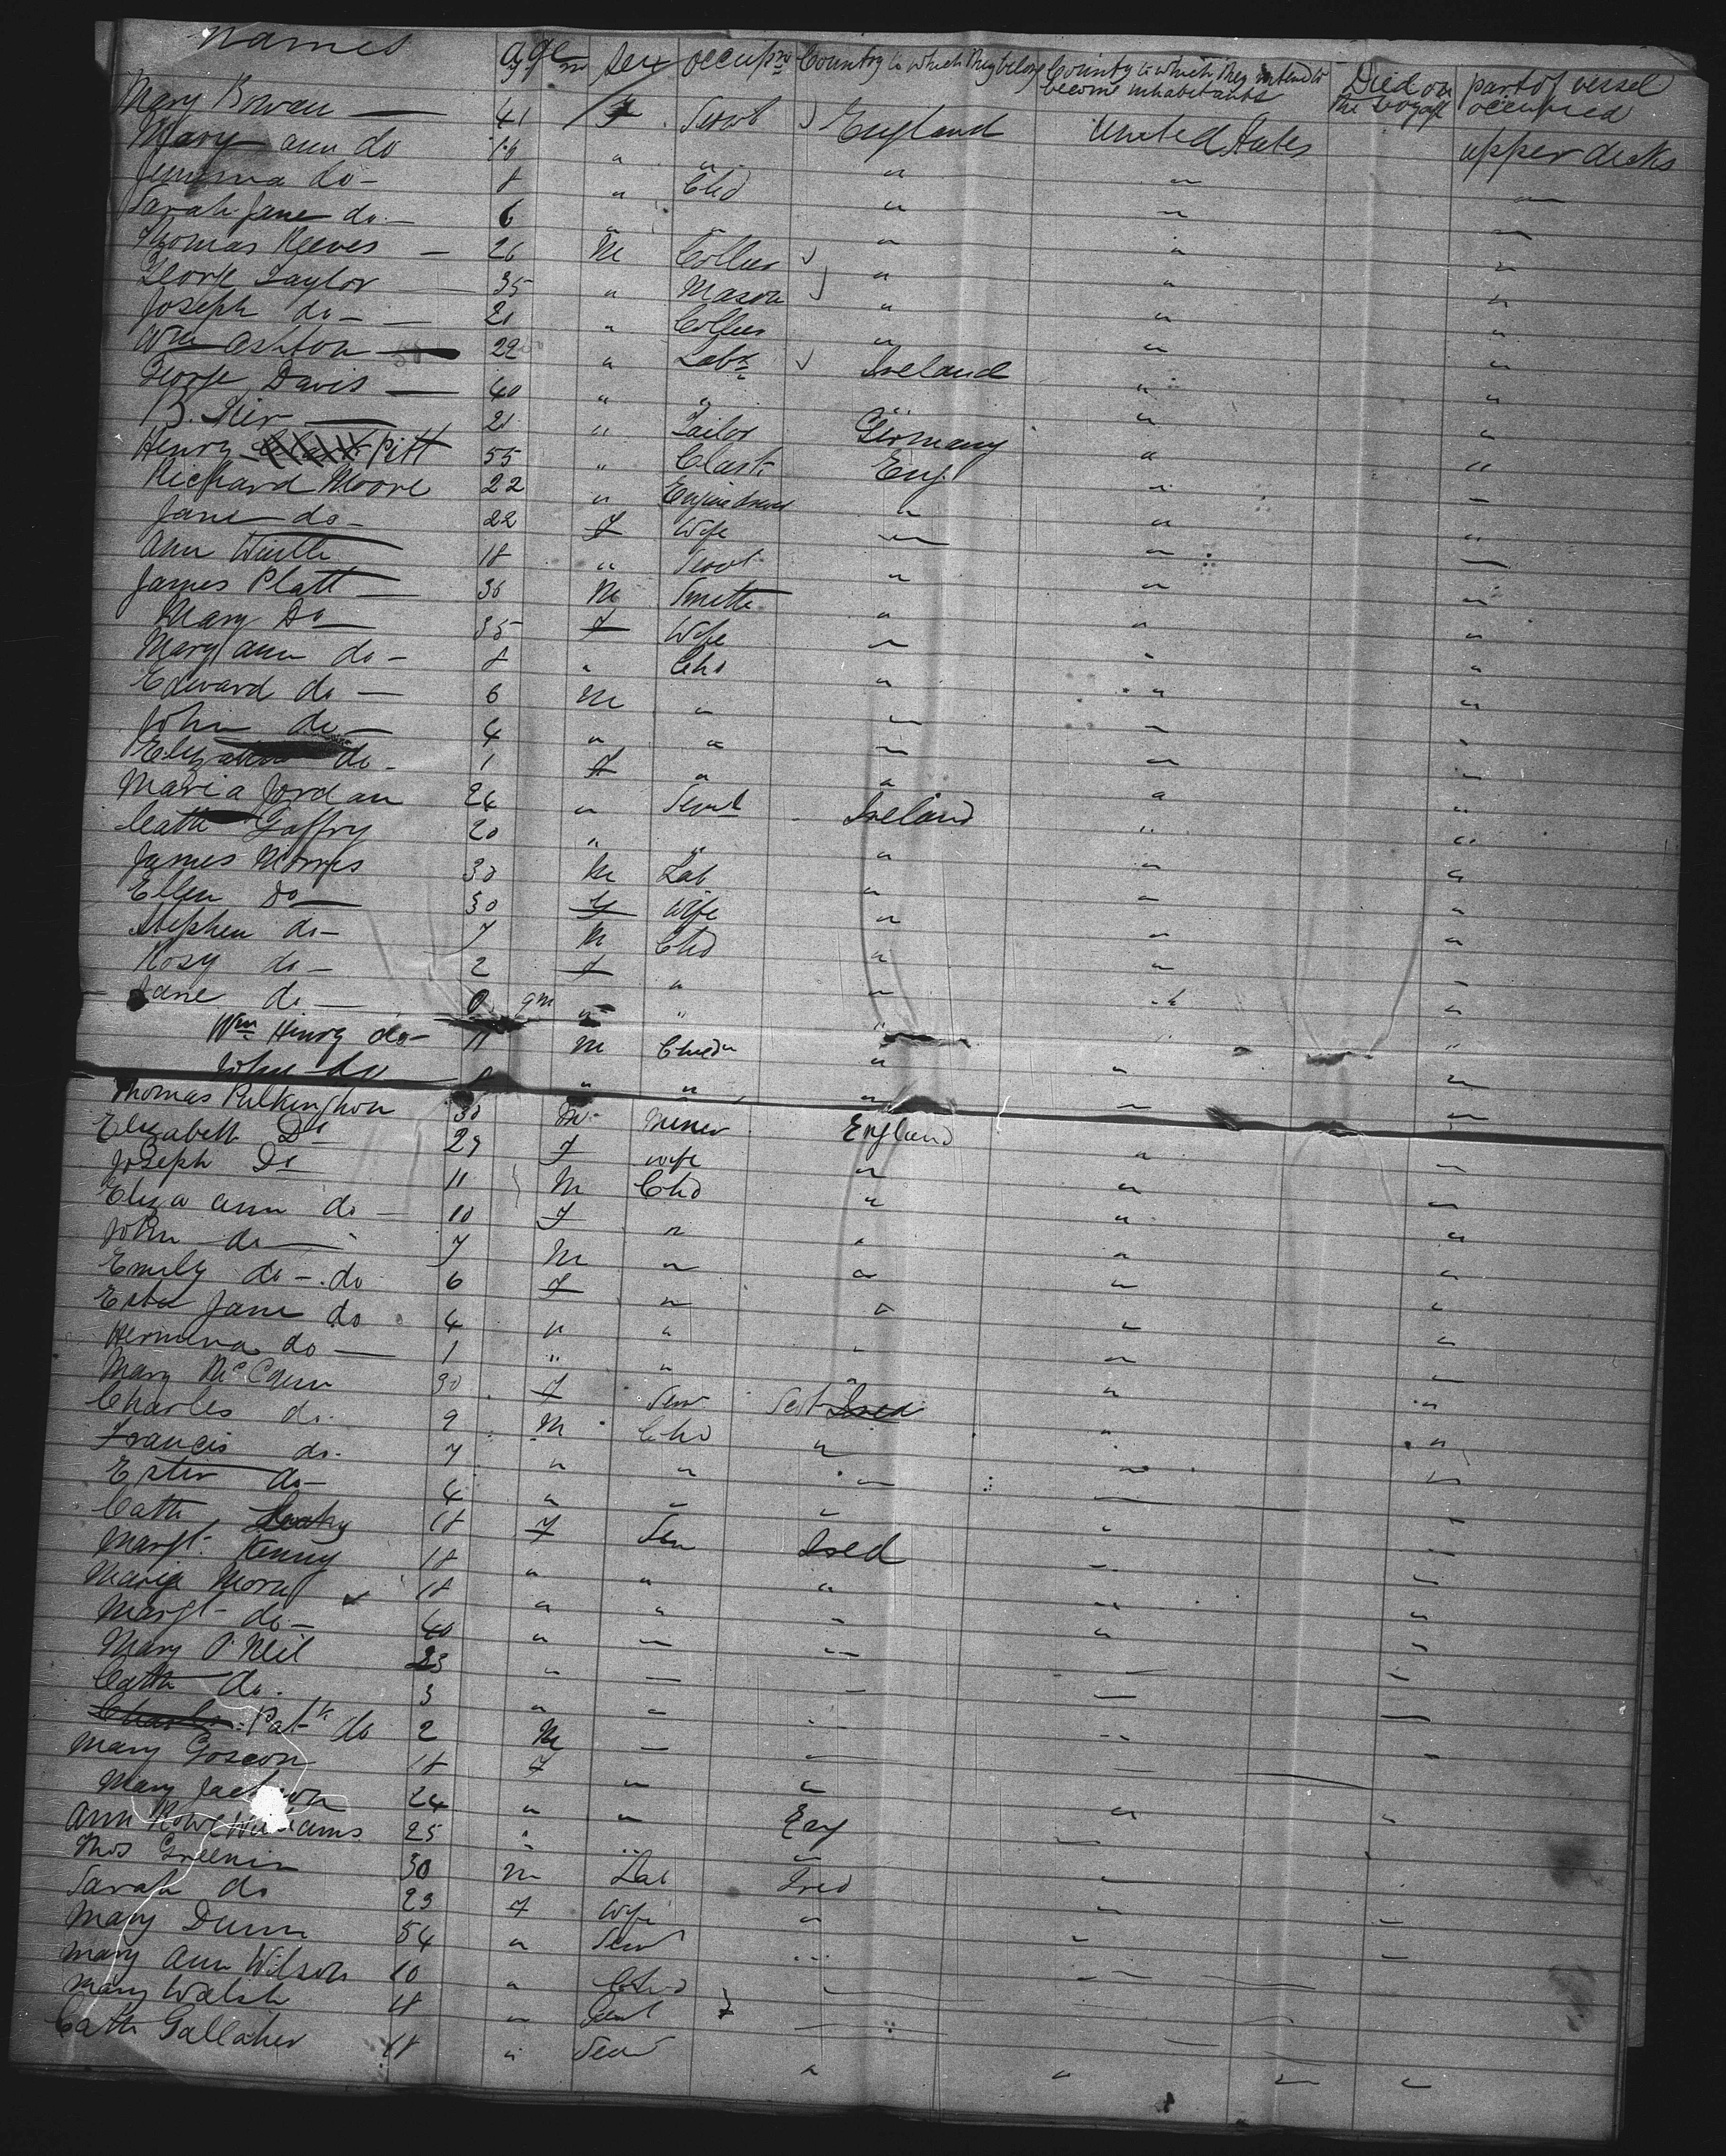 Names age sex occup Country to which they belong County to which they intend to become inhabitants Died on the voyage part of vessel occupied
Mary Rowan — 41 f Servt England United States upper decks
Mary ann do 18 " " " " "
Jemima do - 8 " Chd " " "
Sarah Jane do - 6 " " " " "
Thomas Reeves - 26 M Collier " " "
George Taylor 35 " Mason " " "
Joseph do - 21 " Collier " " "
Wm Ashton — 22 " Labr Ireland " "
George Davis — 40 " " " " "
21 " Tailor Germany " "
Henry Pitt 55 " Eng. " "
Richard Moore 22 " " " "
Jane do - 22 f Wife " " "
Ann 18 " Servt " " "
James Platt — 36 M Smith " " "
Mary Do 35 f Wife " " "
Mary ann do - 8 " Chd " " "
Edward do — 6 M " " " "
John do — 4 " " " " "
do - 1 f " " " "
Maria Jordan 24 " Servt Ireland " "
Cath Gaffry 20 " " " " "
James Morris 30 M Lab " " "
Ellen Do — 30 f Wife " " "
Stephen do - 7 M Chd " " "
Rosy do - 2 f " " " "
Jane do — 0 9m " " " " "
Wm Henry do - 11 M " " "
John do " " " " "
Thomas Pilkington 30 M Miner England
Elizabeth Do 29 f wife " " "
Joseph Do 11 M Chd " " "
Eliza ann do - 10 f " " " "
John do — 7 M " " " "
Emily do - do 6 f " " " "
Ester Jane do 4 " " " " "
do — 1 " " " " "
Mary McCann 30 f Ser " "
Charles do. 9 M Chd " " "
Francis do. 7 " " " " "
Ester do - 4 " " " " "
Cath 18 f Ser Ired " "
Margt. Kenny 18 " " " " "
Maria Moran 18 " " " " "
Margt - do - 40 " " " " "
Mary O'Neil 23 " " " " "
Cath do. 3 " " " " "
Patk do 2 M " " " "
Mary 18 f " " "
Mary Jackson 24 " " Eng " "
Ann Rowe Williams 25 " " "
Thos 30 m Lab Ired "
Sarah do 29 f Wife " " "
Mary Dunn 54 " Servt " " "
Mary Ann Wilson 10 " Chd "
Mary Walsh 18 " Servt
Cath Gallaher 18 " Serv " " " "